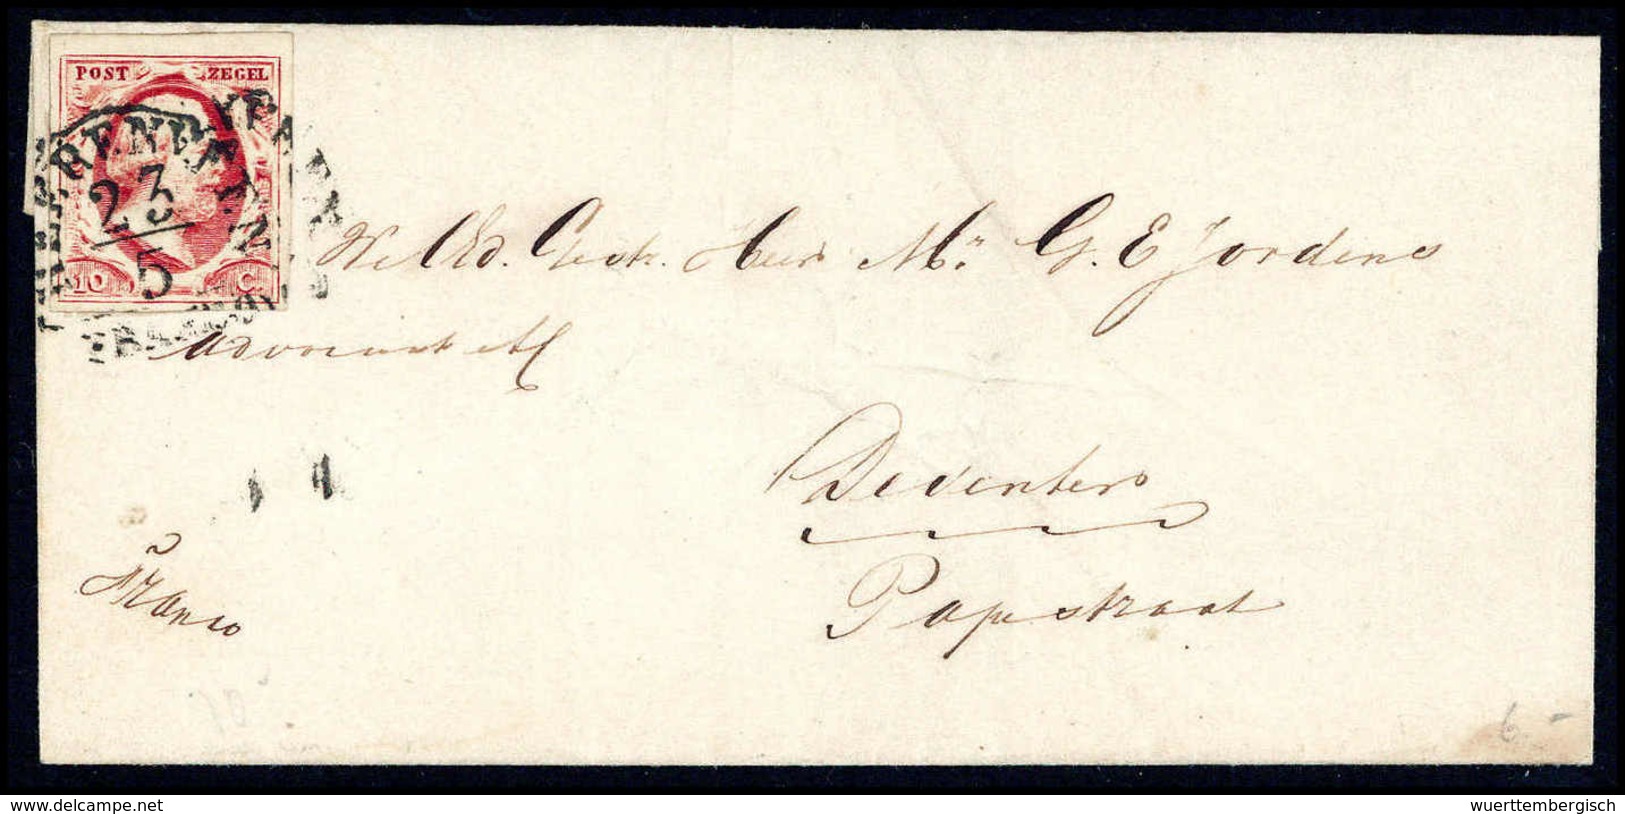 POST ZEGEL
HEERENVEEN
23
5
10 C.
FRANCO
Heer Mr. G. E. Jordens
Advocaat
Deventer
Papestraat
Franco
6.-
www.delcampe.net
wuerttembergisch